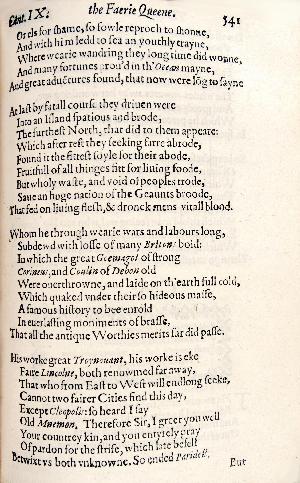 Cant. IX. the Faerie Queene. 541
Or els for shame, so fowle reproch to shonne,
And with him ledd to sea an youthly trayne,
Where wearie wandring they long time did wonne,
And many fortunes prou'd in th'Ocean mayne,
And great aduētures found, that now were lōg to sayne
At last by fatall course they driuen were
Into an Island spatious and brode,
The furthest North, that did to them appeare:
Which after rest they seeking farre abrode,
Found it the fittest soyle for their abode,
Fruitfull of all thinges fitt for liuing foode,
But wholy waste, and void of peoples trode,
Saue an huge nation of the Geaunts broode,
That fed on liuing flesh, & dronck mens vitall blood.
Whom he through wearie wars and labours long,
Subdewd with losse of many Britons bold:
In which the great Goemagot of strong
Corineus, and Coulin of Debon old
Were ouerthrowne, and laide on th'earth full cold,
Which quaked vnder their so hideous masse,
A famous history to bee enrold
In euerlasting moniments of brasse,
That all the antique Worthies merits far did passe.
His worke great Troynouant, his worke is eke
Faire Lincolne, both renowned far away,
That who from East to West will endlong seeke,
Cannot two fairer Cities find this day,
Except Cleopolis: so heard I say
Old Mnemon. Therefore Sir, I greet you well
Your countrey kin, and you entyrely pray
Of pardon for the strife, which late befell
Betwixt vs both vnknowne. So ended Paridell.
But